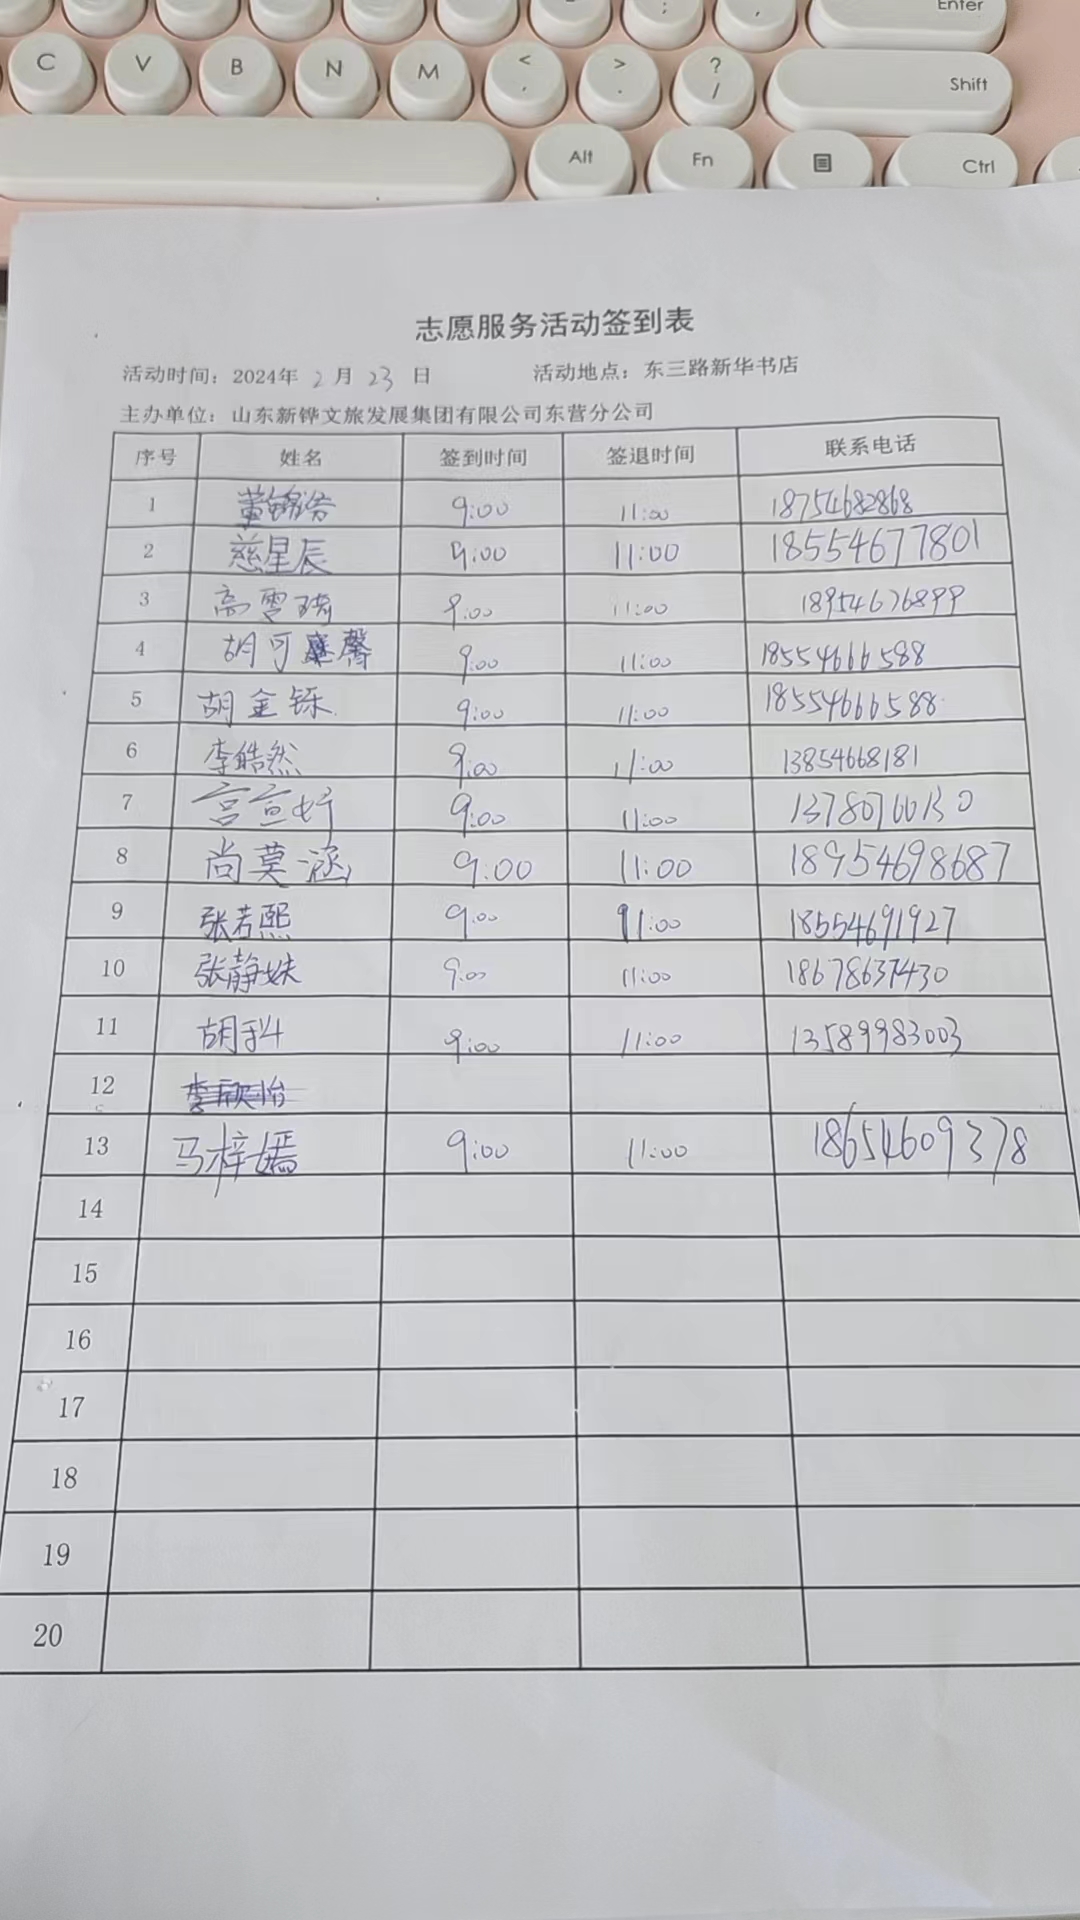 Enter
C V B N M < , > . ? / Shift
Alt Fn Ctrl
志愿服务活动签到表
活动时间：2024年 2 月 23 日 活动地点：东三路新华书店
主办单位：山东新铧文旅发展集团有限公司东营分公司
序号 姓名 签到时间 签退时间 联系电话
1 董锦浴 9:00 11:00 18754682868
2 慈星辰 9:00 11:00 18554677801
3 高雪琦 9:00 11:00 18954676899
4 胡可馨 9:00 11:00 18554666588
5 胡金铄 9:00 11:00 18554666588
6 李皓然 9:00 11:00 13854668181
7 宫宣妤 9:00 11:00
8 尚莫涵 9:00 11:00 18954698687
9 张若熙 9:00 11:00 18554691927
10 张静姝 9:00 11:00 18678637430
11 胡 9:00 11:00 13589983003
12 李欣怡
13 马梓嫣 9:00 11:00 18654609378
14
15
16
17
18
19
20